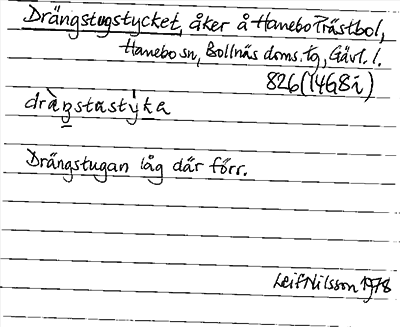 Drängstugstycket, åker å Hanebo Prästbol,
Hanebo sn, Bollnäs doms. tg, Gävl. l.
826 (14G8i)
dràŋstᴀstỳka
Drängstugan låg där förr.
Leif Nilsson 1978